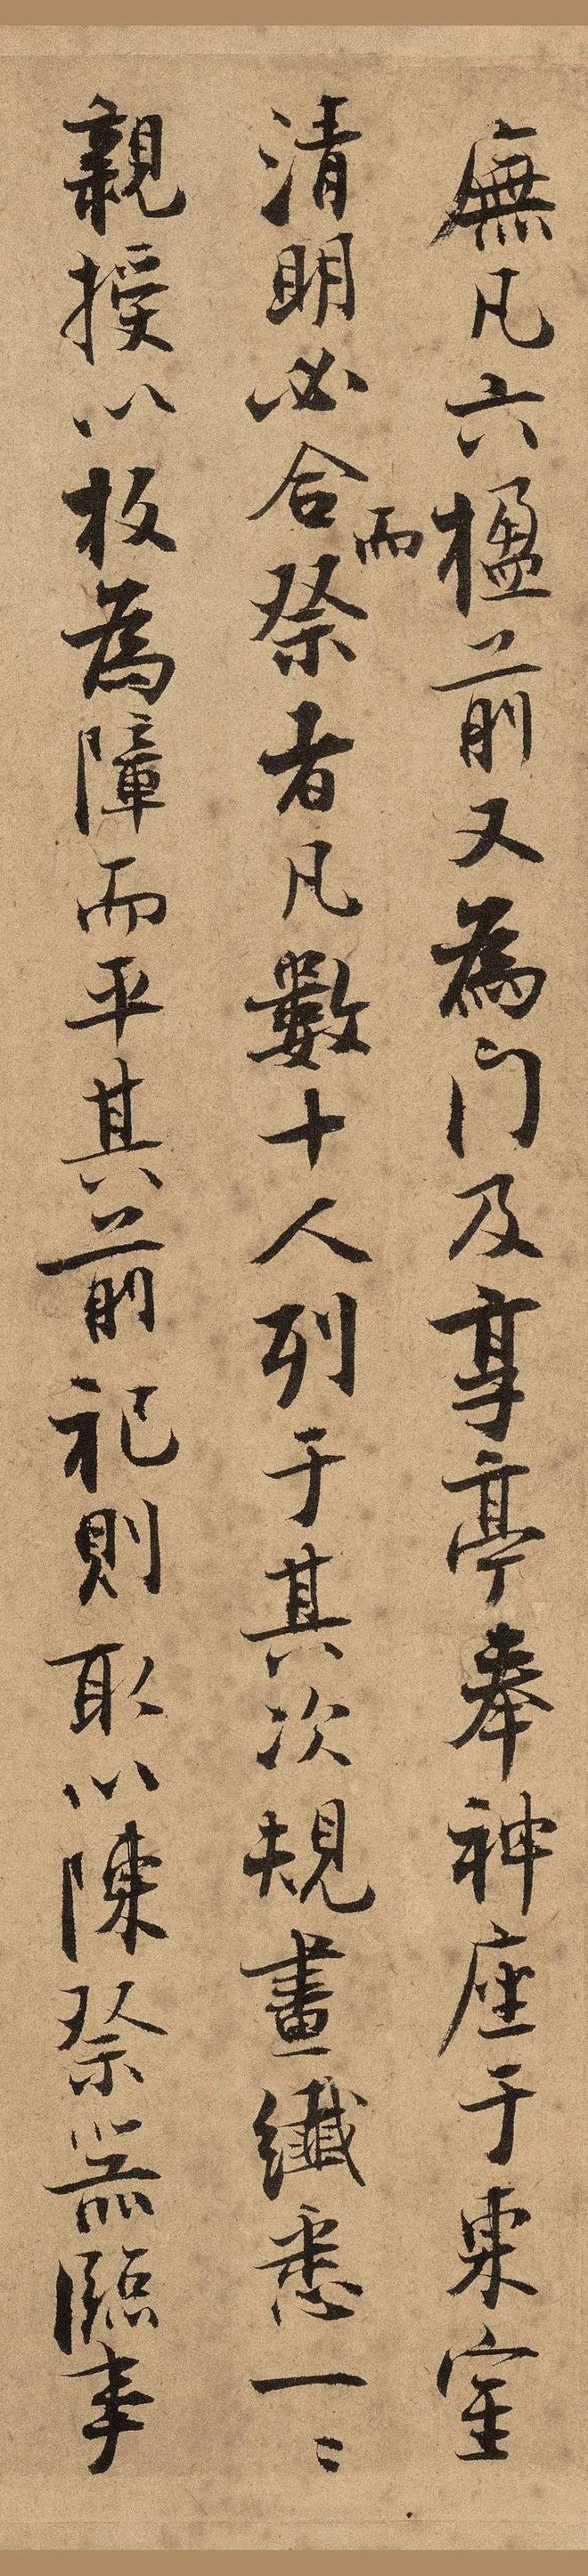 廡凡六楹前又為門及享亭奉神座于東室
而
清明必合祭者凡數十人列于其次規畫纖悉一〻
親授以板為障而平其前祀則取以陳祭器臨事